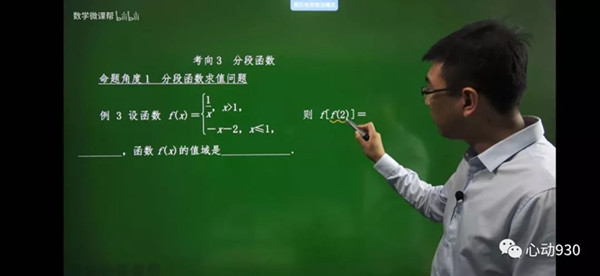 数学微课帮 bilibili
考向3 分段函数
命题角度1 分段函数求值问题
例 3 设函数 f(x)={1/x, x>1, -x-2, x≤1, 则 f[f(2)]=
________,函数 f(x)的值域是__________.
心动930